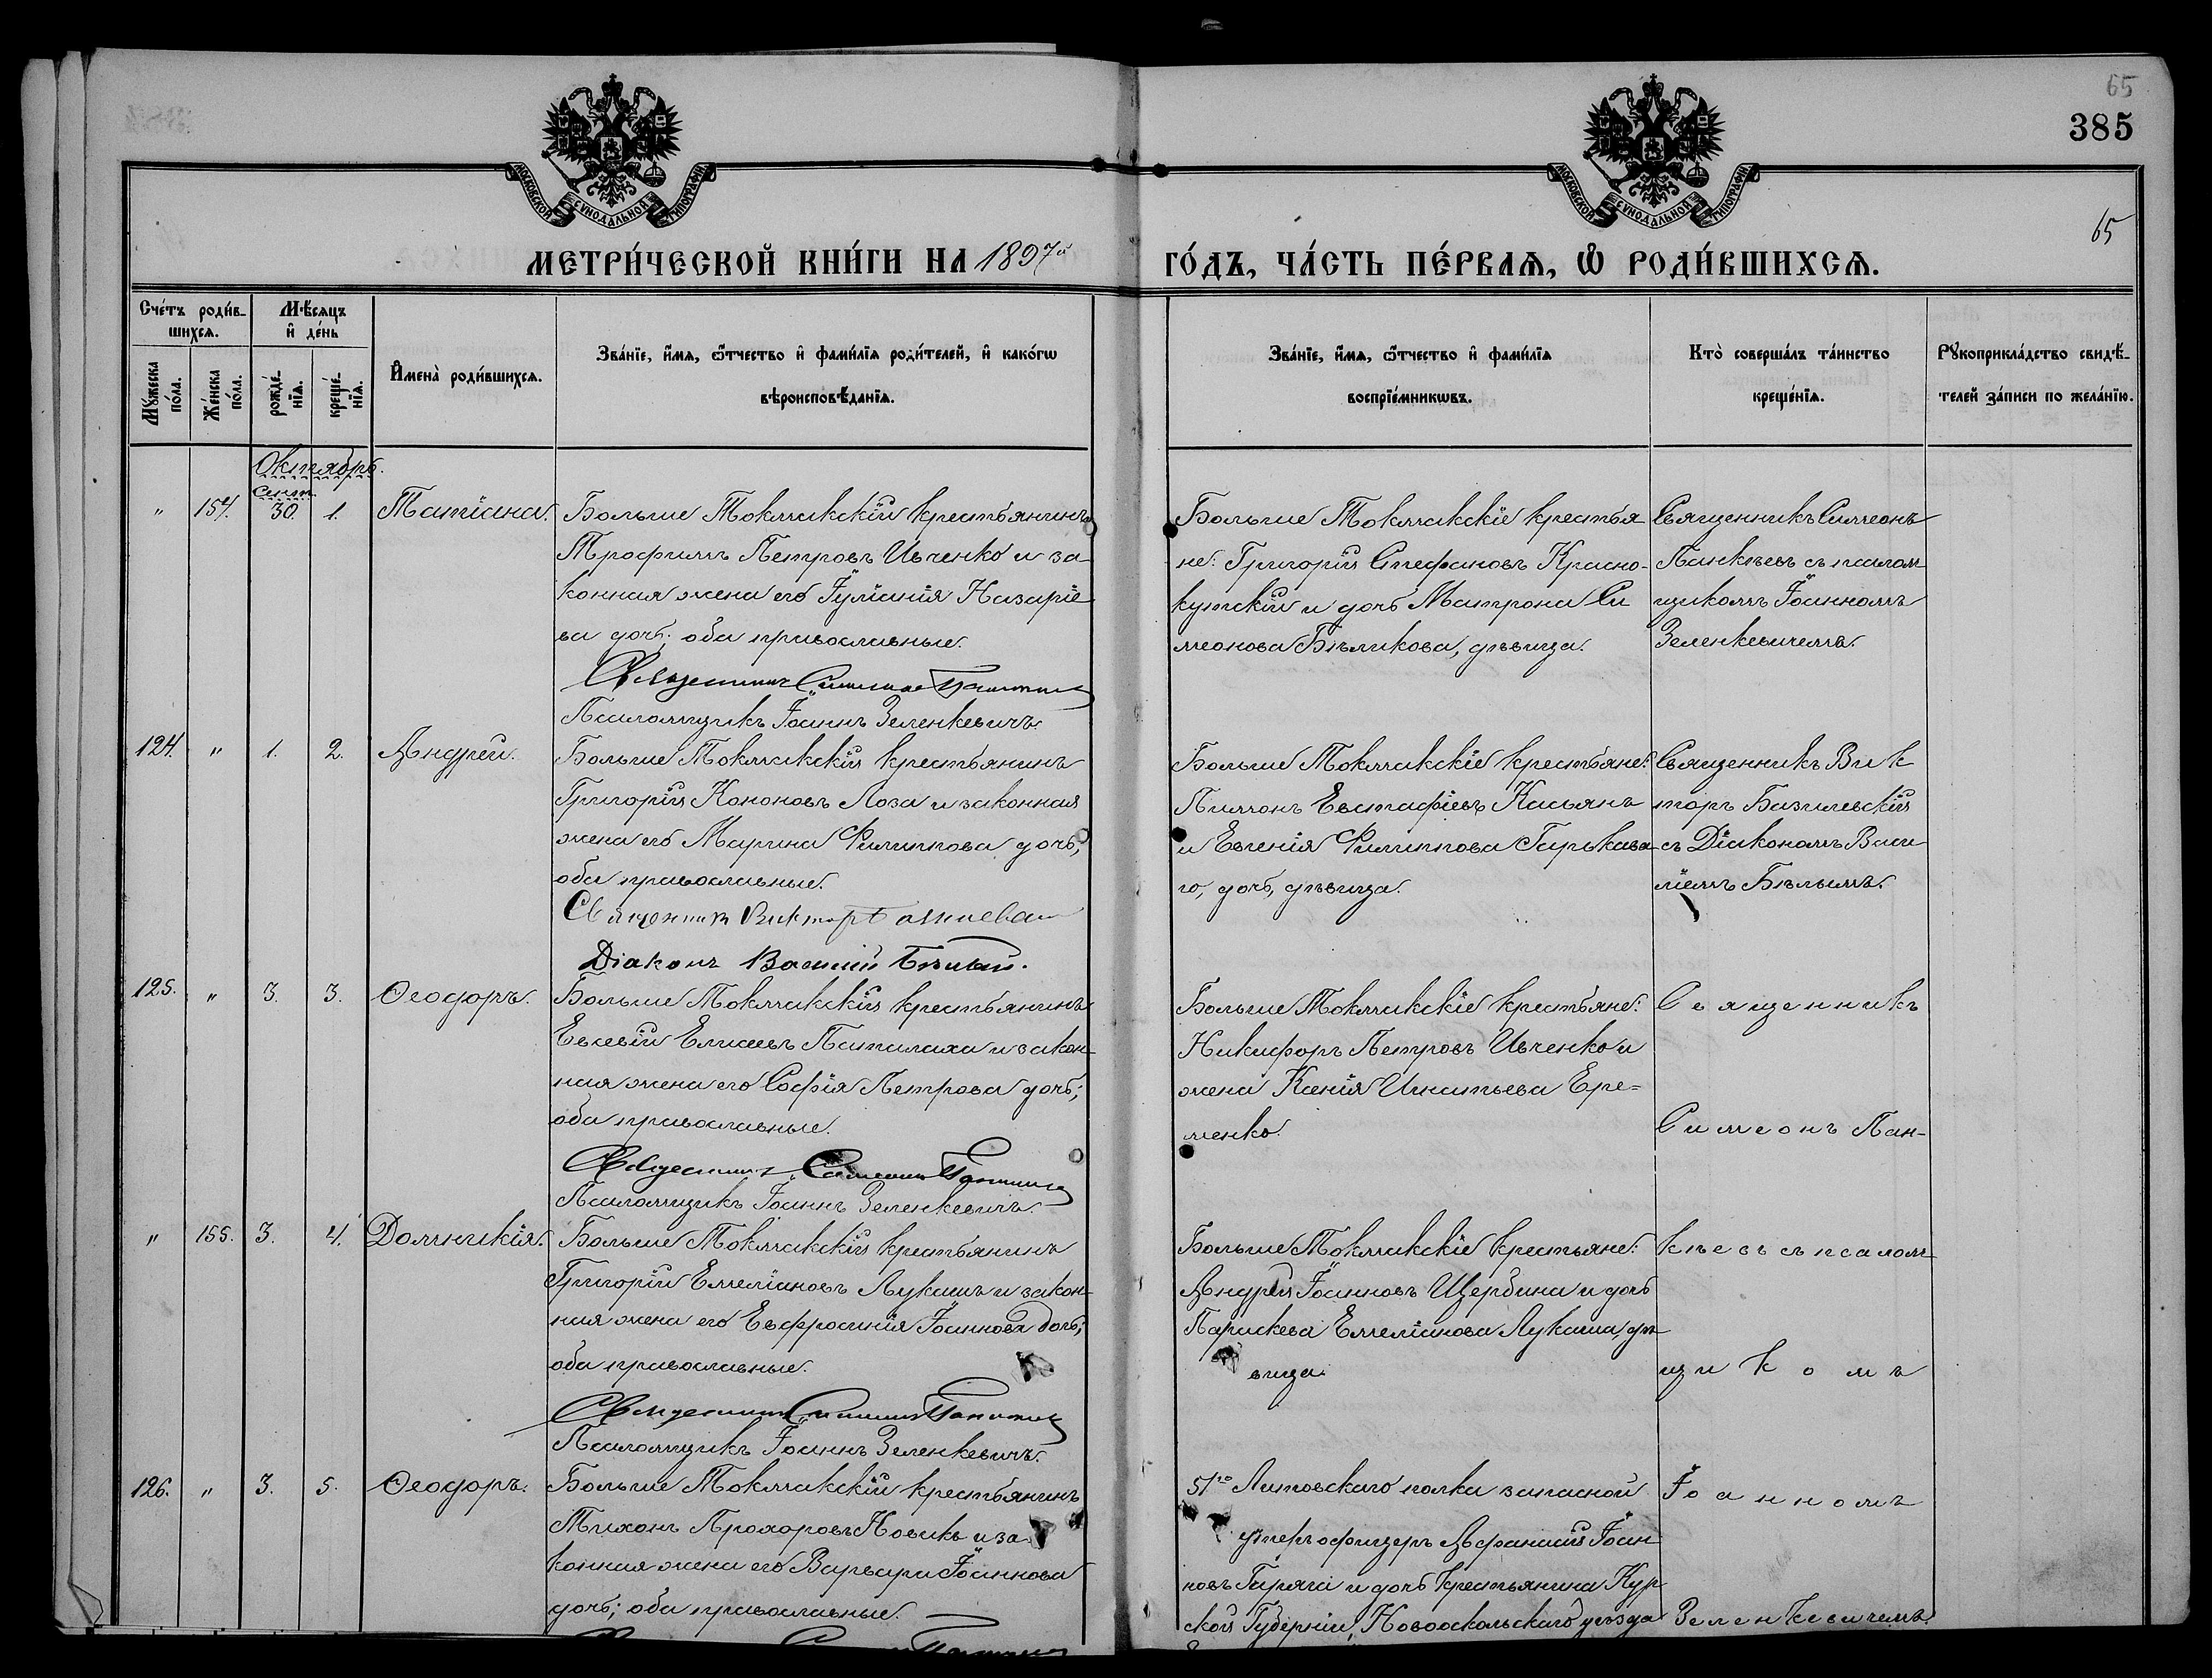 65
385
65
МОСКОВСКОЙ СѴНОДАЛЬНОЙ ТИПОГРАФІИ
МОСКОВСКОЙ СѴНОДАЛЬНОЙ ТИПОГРАФІИ
МЕТРИ́ЧЕСКОЙ КНИ́ГИ НА 1897й ГО́ДЪ, ЧА́СТЬ ПЕ́РВАѦ, Ѽ РОДИ́ВШИХСѦ.
Сче́тъ роди́в-
шихсѧ.
Мꙋ́жеска по́ла.
Же́нска по́ла.
Мѣ́сяцъ
и҆ де́нь
рожде́-
нїѧ.
креще́-
нїѧ.
И҆мена̀ роди́вшихсѧ.
Зва́нїе, и҆́мѧ, ѻ҆́тчество и҆ фами́лїѧ роди́телей, и҆ како́гѡ
вѣроисповѣ́данїѧ.
Зва́нїе, и҆́мѧ, ѻ҆́тчество и҆ фами́лїѧ
воспрїе́мникѡвъ.
Кто̀ соверша́лъ та́инство
креще́нїѧ.
Рꙋкоприкла́дство свидѣ́-
телей за́писи по жела́нїю.
Октябрь.
Сент.
" 154. 30. 1. Татіана.
Больше Токмакскій крестьянинъ
Трофимъ Петровъ Ивченко и за-
конная жена его Іуліанія Назаріе
ва дочь; оба православные.
Священникъ Симеонъ
Псаломщикъ Іоаннъ Зеленкевичъ.
Больше Токмакскіе крестья
не: Григорій Стефановъ Красно-
кутскій и дочь Матрона Си
меонова Бѣликова, дѣвица.
Священникъ Симеонъ
Панкѣевъ съ псалом
щикомъ Іоанномъ
Зеленкевичемъ.
124. " 1. 2. Андрей.
Больше Токмакскій крестьянинъ
Григорій Кононовъ Лоза и законная
жена его Марина Филиппова дочь;
оба православные.
Священникъ Викторъ
Діаконъ Василій Бѣлый.
Больше Токмакскіе крестьяне:
Пимонъ Евстафіевъ Касьянъ
и Евгенія Филиппова Гаркава-
го, дочь, дѣвица.
Священникъ Вик
торъ Базилевскій
съ Діакономъ Васи
ліемъ Бѣлымъ.
125. " 3. 3. Ѳеодоръ.
Больше Токмакскій крестьянинъ
Евсевій Елисеевъ Паталаха и закон-
ная жена его Софія Петрова дочь;
оба православные.
Священникъ Симеонъ
Псаломщикъ Іоаннъ Зеленкевичъ.
Больше Токмакскіе крестьяне:
Никифоръ Петровъ Ивченко и
жена Ксенія Игнатьева Ере=
менко.
Священникъ
Симеонъ Пан-
" 155. 3. 4. Домникія.
Больше Токмакскій крестьянинъ
Григорій Емеліановъ Лукашъ и закон-
ная жена его Евфросинія Іоаннова дочь;
оба православные.
Священникъ Симеонъ
Псаломщикъ Іоаннъ Зеленкевичъ.
Больше Токмакскіе крестьяне:
Андрей Іоанновъ Щербина и дочь
Параскева Емеліанова Лукаша, дѣ-
вица.
кѣевъ съ псалом-
щикомъ
126. " 3. 5. Ѳеодоръ.
Больше Токмакскій крестьянинъ
Тихонъ Прохоровъ Новикъ и за
конная жена его Варвара Іоаннова
дочь; оба православные.
51го Литовскаго полка запасной
унтеръ офицеръ Афанасій Іоан
новъ Гаряга и дочь крестьянина Кур
ской Губерніи, Новооскольскаго уѣзда
Іоанномъ
Зеленкевичемъ.